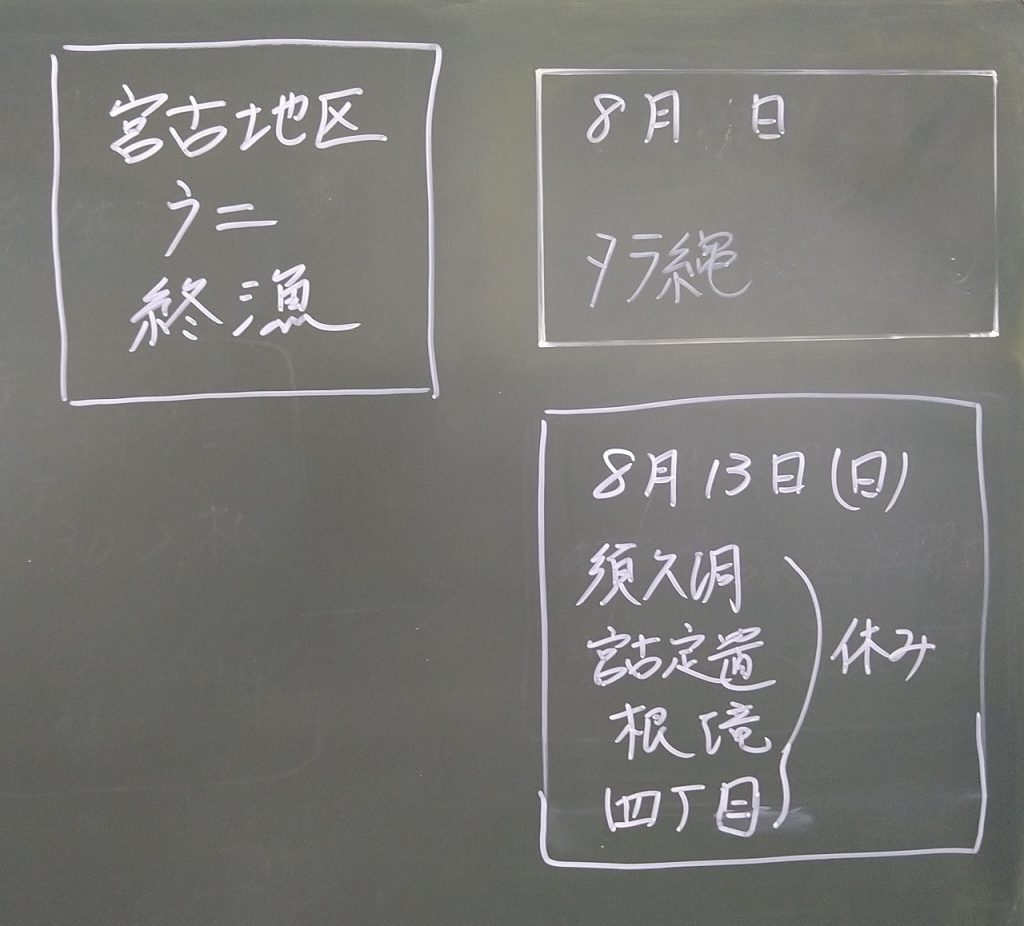 宮古地区
ウニ
終漁
8月 日
タラ縄
8月13日(日)
須久洞
宮古定置
根滝
四丁目
休み